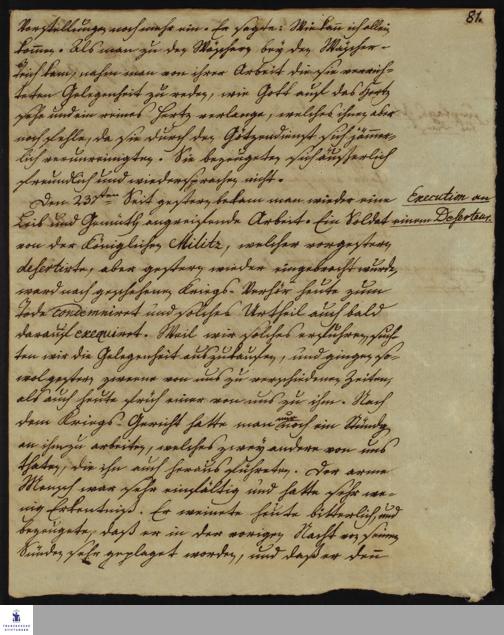 81.
Vorstellungen noch mehr ein. Er sagte: Wie kan ich allein
kommen. Als man zu den Wäschern bey dem Wäscher-
teich kam, nahm man von ihrer Arbeit die sie verrich-
teten Gelegenheit zu reden, wie Gott auf das Hertz
sehe und ein reines Hertz verlange, welches ihnen aber
noch fehle, da sie durch den Götzendienst sich jämmer-
lich verunreinigten. Sie bezeugeten sich äusserlich
freundlich und wiedersprachen nicht.
Den 23sten Seit gestern bekam man wieder eine
Execution an
einem Deserteur.
Leib und Gemüth angreifende Arbeit. Ein Soldat
von der Königlichen Militz, welcher vorgestern
desertirte, aber gestern wieder eingebracht wurde,
ward nach geschehenem Kriegs-Verhör heute zum
Tode condemniret und solches Urtheil auch bald
darauf exequiret. Weil wir solches erfuhren, such-
ten wir die Gelegenheit auszukaufen, und gingen so-
wol gestern zweene von uns zu verschiedenen Zeiten,
als auch heute früh einer von uns zu ihm. Nach
dem Kriegs-Gericht hatte man nur noch ein Stündgen
an ihm zu arbeiten, welches zwey andere von uns
thaten, die ihn auch heraus führeten. Der arme
Mensch war sehr einfältig und hatte sehr we-
nig Erkentniß. Er weinete heute bitterlich, und
bezeugete, daß er in der vorigen Nacht von seinen
Sünden sehr geplaget worden, und daß er den
FRANCKESCHE
STIFTUNGEN